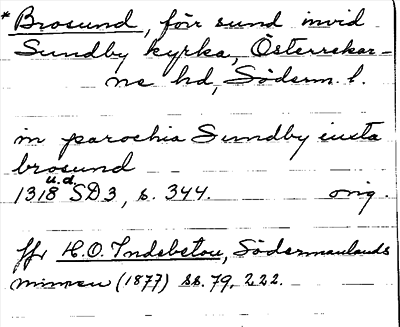 *Brosund, förr sund invid
Sundby kyrka, Österrekar-
ne hd, Söderm. l.
in parochia Sundby iuxta
brosund
1318 u.d. SD 3, s. 344. orig.
Jfr H.O. Indebetou, Södermanlands
minnen (1877) ss. 79, 222.